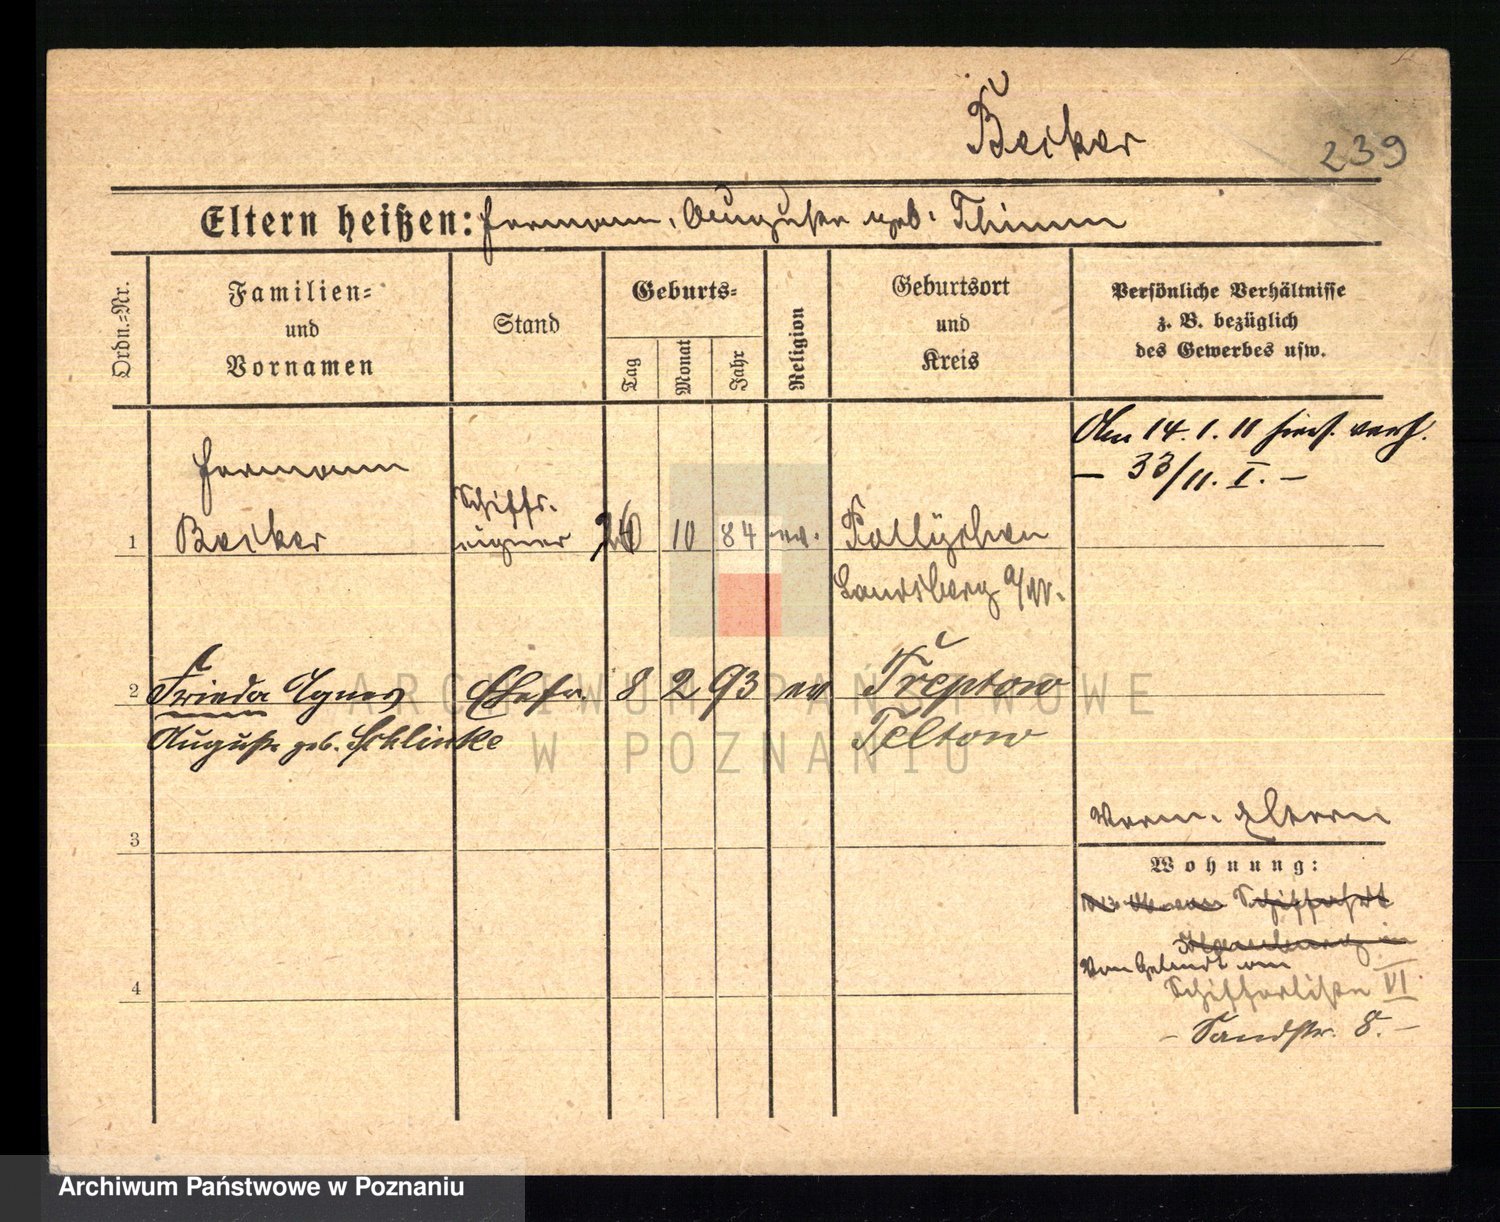 Becker
239
Eltern heißen: Hermann, Auguste geb. Thimm
Ordn.-Nr.
Familien-
und
Vornamen
Stand
Geburts-
Tag
Monat
Jahr
Religion
Geburtsort
und
Kreis
Persönliche Verhältnisse
z. B. bezüglich
des Gewerbes usw.
Am 14. 1. 11 hies. verh.
– 33/11. I. –
Hermann
1 Becker
Schiffs-
eigner
10 84 ev.
Landsberg a/W.
2 Frieda Agnes
Auguste geb. Schlinke
Ehefr. 8 2 93 ev
Treptow
Teltow
Verm. Eltern
3
Wohnung:
Schiffahrt
4
Schifferliste VI
– Sandstr. 8. –
ARCHIWUM PAŃSTWOWE
W POZNANIU
Archiwum Państwowe w Poznaniu